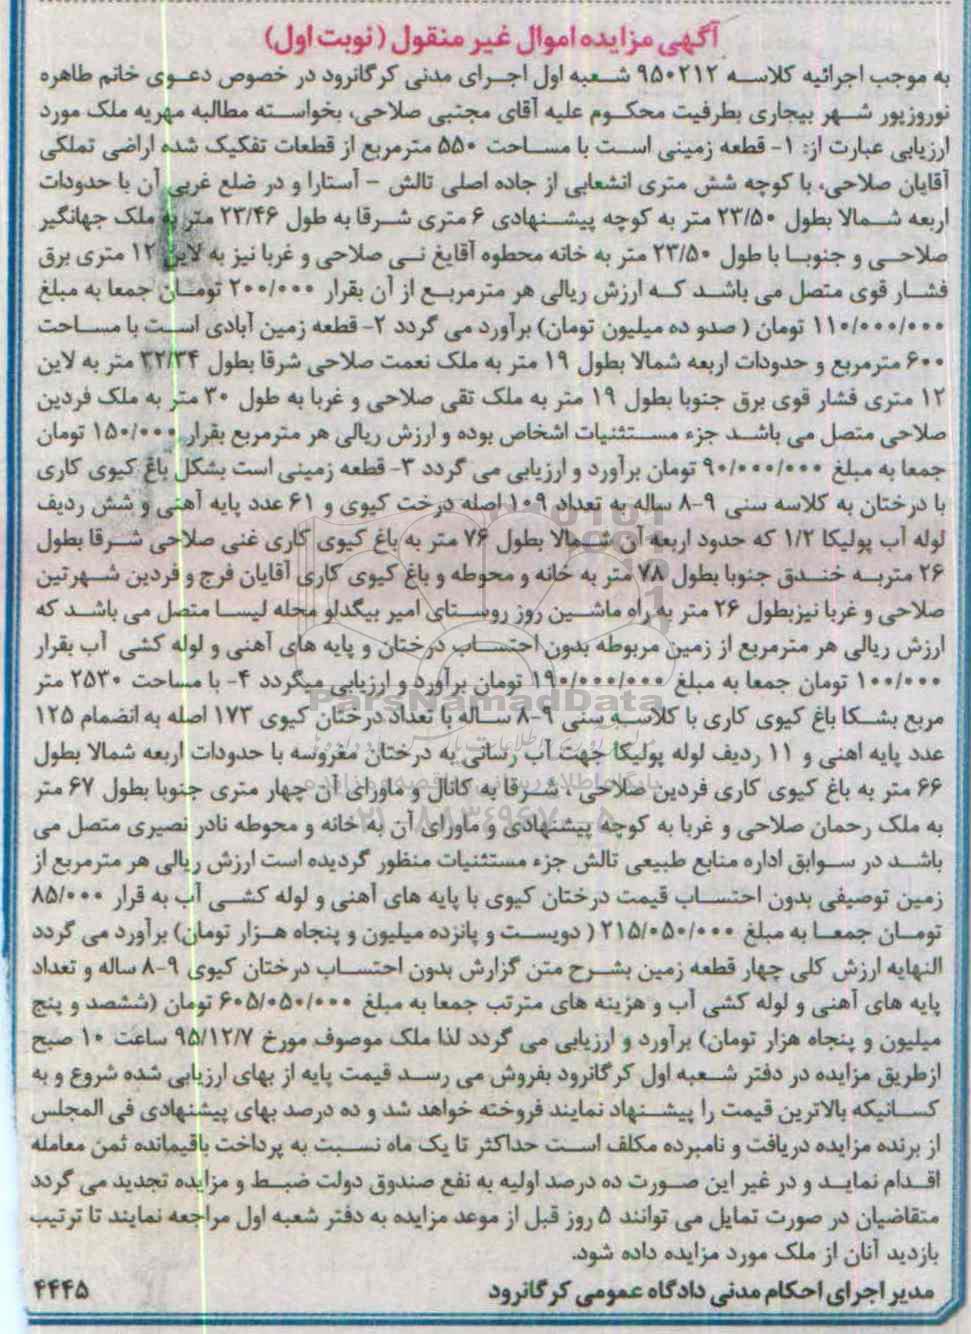 آگهی مزایده اموال غیر منقول (نوبت اول)
به موجب اجرائیه کلاسه ۹۵۰۲۱۲ شعبه اول اجرای مدنی کرگانرود در خصوص دعوی خانم طاهره
نوروزپور شهر بیجاری بطرفیت محکوم علیه آقای مجتبی صلاحی، بخواسته مطالبه مهریه ملک مورد
ارزیابی عبارت از: ۱- قطعه زمینی است با مساحت ۵۵۰ مترمربع از قطعات تفکیک شده اراضی تملکی
آقایان صلاحی، با کوچه شش متری انشعابی از جاده اصلی تالش – آستارا و در ضلع غربی آن با حدودات
اربعه شمالا بطول ۲۳/۵۰ متر به کوچه پیشنهادی ۶ متری شرقا به طول ۲۳/۴۶ متر به ملک جهانگیر
صلاحی و جنوبا با طول ۲۳/۵۰ متر به خانه محطوه آقایغ نی صلاحی و غربا نیز به لاین ۱۲ متری برق
فشار قوی متصل می باشد که ارزش ریالی هر مترمربع از آن بقرار ۲۰۰/۰۰۰ تومان جمعا به مبلغ
۱۱۰/۰۰۰/۰۰۰ تومان (صدو ده میلیون تومان) برآورد می گردد ۲- قطعه زمین آبادی است با مساحت
۶۰۰ مترمربع و حدودات اربعه شمالا بطول ۱۹ متر به ملک نعمت صلاحی شرقا بطول ۳۲/۳۴ متر به لاین
۱۲ متری فشار قوی برق جنوبا بطول ۱۹ متر به ملک تقی صلاحی و غربا به طول ۳۰ متر به ملک فردین
صلاحی متصل می باشد جزء مستثنیات اشخاص بوده و ارزش ریالی هر مترمربع بقرار ۱۵۰/۰۰۰ تومان
جمعا به مبلغ ۹۰/۰۰۰/۰۰۰ تومان برآورد و ارزیابی می گردد ۳- قطعه زمینی است بشکل باغ کیوی کاری
با درختان به کلاسه سنی ۹-۸ ساله به تعداد ۱۰۹ اصله درخت کیوی و ۶۱ عدد پایه آهنی و شش ردیف
لوله آب پولیکا ۱/۲ که حدود اربعه آن شمالا بطول ۷۶ متر به باغ کیوی کاری غنی صلاحی شرقا بطول
۲۶ متربه خندق جنوبا بطول ۷۸ متر به خانه و محوطه و باغ کیوی کاری آقایان فرج و فردین شهرتین
صلاحی و غربا نیزبطول ۲۶ متر به راه ماشین روز روستای امیر بیگدلو محله لیسا متصل می باشد که
ارزش ریالی هر مترمربع از زمین مربوطه بدون احتساب درختان و پایه های آهنی و لوله کشی آب بقرار
۱۰۰/۰۰۰ تومان جمعا به مبلغ ۱۹۰/۰۰۰/۰۰۰ تومان برآورد و ارزیابی میگردد ۴- با مساحت ۲۵۳۰ متر
مربع بشکا باغ کیوی کاری با کلاسه سنی ۹-۸ ساله با تعداد درختان کیوی ۱۷۳ اصله به انضمام ۱۲۵
عدد پایه اهنی و ۱۱ ردیف لوله پولیکا جهت آب رسانی به درختان مغروسه با حدودات اربعه شمالا بطول
۶۶ متر به باغ کیوی کاری فردین صلاحی، شرقا به کانال و ماورای آن چهار متری جنوبا بطول ۶۷ متر
به ملک رحمان صلاحی و غربا به کوچه پیشنهادی و ماورای آن به خانه و محوطه نادر نصیری متصل می
باشد در سوابق اداره منابع طبیعی تالش جزء مستثنیات منظور گردیده است ارزش ریالی هر مترمربع از
زمین توصیفی بدون احتساب قیمت درختان کیوی با پایه های آهنی و لوله کشی آب به قرار ۸۵/۰۰۰
تومان جمعا به مبلغ ۲۱۵/۰۵۰/۰۰۰ (دویست و پانزده میلیون و پنجاه هزار تومان) برآورد می گردد
النهایه ارزش کلی چهار قطعه زمین بشرح متن گزارش بدون احتساب درختان کیوی ۹-۸ ساله و تعداد
پایه های آهنی و لوله کشی آب و هزینه های مترتب جمعا به مبلغ ۶۰۵/۰۵۰/۰۰۰ تومان (ششصد و پنج
میلیون و پنجاه هزار تومان) برآورد و ارزیابی می گردد لذا ملک موصوف مورخ ۹۵/۱۲/۷ ساعت ۱۰ صبح
ازطریق مزایده در دفتر شعبه اول کرگانرود بفروش می رسد قیمت پایه از بهای ارزیابی شده شروع و به
کسانیکه بالاترین قیمت را پیشنهاد نمایند فروخته خواهد شد و ده درصد بهای پیشنهادی فی المجلس
از برنده مزایده دریافت و نامبرده مکلف است حداکثر تا یک ماه نسبت به پرداخت باقیمانده ثمن معامله
اقدام نماید و در غیر این صورت ده درصد اولیه به نفع صندوق دولت ضبط و مزایده تجدید می گردد
متقاضیان در صورت تمایل می توانند ۵ روز قبل از موعد مزایده به دفتر شعبه اول مراجعه نمایند تا ترتیب
بازدید آنان از ملک مورد مزایده داده شود.
مدیر اجرای احکام مدنی دادگاه عمومی کرگانرود ۴۴۴۵
ParsNamadData